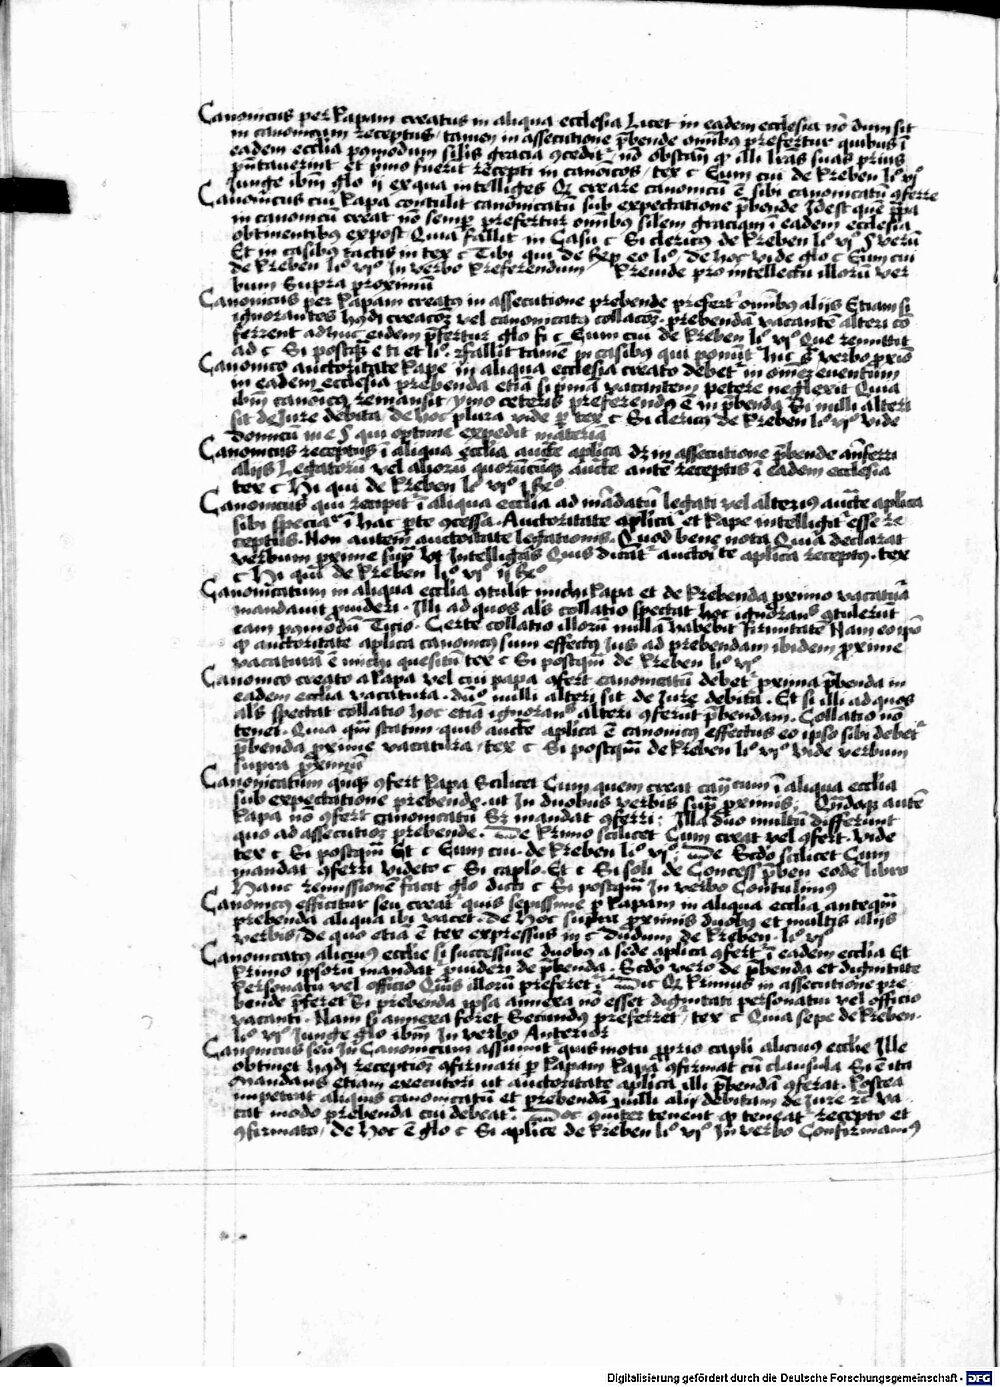 Canonicus per Papam creatus in aliqua ecclesia Licet in eadem ecclesia nō dum sit
in canonicum receptus / tamen in assecutione p̄bende om̄ibus prefertur quibus ī
eadem ecclia pᵒmodum silis gracia ꝯcedit᷑ / nō obstan̄ qꝫ alij lr̄as suas prius
pn̄tauerint Et pͥmo fuerit recepti in canoicos / tex c Eum cui de Preben liᵒ vjᵒ
Junge ibm̄ glo ij ex qua intelliges Qꝫ creare canonicū ē sibi canonicatū ꝯferre
Canonicus cui Papa contulit canonicatum sub expectatione p̄bende Idest quē papa
in canonicū creat nō semꝑ prefertur om̄ibus silem graciam ī eadem ecclesia
obtinentibus expost Quia fallit in Casu c Si clericus de Preben liᵒ vjᵒ § verū
Et in casibus tactis in tex c Tibi qui de Rescrip eo liᵒ / de hoc vide glo c Eum cui
de Preben liᵒ vjᵒ In verbo Preferendum / Preinde pro intellectu illorū ver
bum Supra proximū
Canonicus per Papam creatꝰ in assecutione prebende prefert᷑ om̄ibus alijs Etiam si
ignorantes hmōi creacoꝫ vel canonicatus collacoꝫ prebendā vacantē alteri cō
ferrent adhuc eidem p̄fertur glo fi c Eum cui de Preben liᵒ vjᵒ Que remittit
ad c Si postqꝫ e ti et liᵒ rfallit tamē in casibus qui ponūt᷑ hic s̄ verbo pxiō
Canonico auctoritate Pape in aliqua ecclesia creato debet᷑ in omēz euentum
in eadem ecclesia prebenda etiā si pͥmā vacantem petere neglexit Quia
ibm̄ canonicus remansit / ymo ceteris preferendꝰ ē in p̄benda Si nulli alteri
sit de Jure debita de hoc plura vide ꝑ tex c Si clericus de Preben liᵒ vjᵒ vide
Domicū in c § qui optime expedit materia
Canonicus receptus ī aliqua ecclia aucte aplica dꝫ in assecutione p̄bende anferri
alijs Legatorū vel aliorū quorūcūqꝫ aucte ante receptus ī eadem ecclesia
tex c Hi qui de Preben liᵒ vjᵒ j Rᵒ
Canonicus qui recipit᷑ ī aliqua ecclia ad mādatū legati vel alterius aucte aplica
sibi specialr᷑ ī hac ꝑte ꝯcessa. Auctoritate aplica et Pape intelligit᷑ esse re
ceptus. Non autem auctoritate legationis. Quod bene nota Quia declarat
verbum pxime supͣ Vt Intelligas Quis dicat᷑ auctoritate aplica receptus. tex
c Hi qui de Preben liᵒ vjᵒ ij Rᵒ
Canonicatum in aliqua ecclia ꝯtulit michi Papa et de Prebenda pximo vacatura
mandauit prouideri. Illi ad quos alis collatio spectat hoc ignorantes ꝯtulerūt
eam pᵒmodū Ticio. Certe collatio illorū nullā habebit firmitatē Nam eo ipō
qꝫ auctoritate aplica canonicꝰ sum effectus Jus ad prebendam ibidem proxime
vacaturā ē michi quesitū tex c Si postqꝫ de Preben liᵒ vjᵒ
Canonico creato a Papa vel cui papa ꝯfert canonicatū debet᷑ prima p̄benda in
eadem ecclia vacatura. dum nulli alteri sit de Jure debita. Et si illi ad quos
alis spectat collatio hoc etiā ignorantes alteri ꝯferunt p̄bendam. Collatio nō
tenet. Quia qm̄ statim quis aucte aplica ē canonicus effectus eo ipso sibi debet᷑
p̄benda proxime vacatura / tex c Si postqꝫ de Preben liᵒ vjᵒ Vide verbum
supra proximū
Canonicatum quādoqꝫ ꝯfert Papa Scilicet Cum quem creat canonicum ī aliqua ecclia
sub expectatione prebende. ut in duobus verbis supͣ proximis; Quādoqꝫ autē
Papa nō ꝯfert canonicatū Sꝫ mandat ꝯferri; Illa duo multū differunt
quo ad assecutioꝫ prebende. Primo scilicet Cum creat vel ꝯfert. Vide
tex c Si postqꝫ Et c Eum cui. de Preben liᵒ vjᵒ; Scdo scilicet Cum
mandat ꝯferri videto c Si caplo. Et c Si soli de Concess p̄ben eodē libro
Hanc remissionē facit glo dicti c Si postqꝫ In verbo Contulimus
Canonicus efficitur seu creat᷑ quis sepissime ꝑ Papam in aliqua ecclia anteqꝫ
prebenda aliqua ibi vacet. de hoc supra proximis duobus et multis alijs
verbis / de quo etiā ē tex expressus in c Dudum de Preben. liᵒ vjᵒ
Canonicatus alicuius ecclie si successiue duobus a sede aplica ꝯfert᷑ ī eadem ecclia Et
Primo ipsorū mandat᷑ prouideri de p̄benda. Scdo vero de p̄benda et dignitate
Personatu vel officio Quis illorū preferet᷑; Dic Qꝫ Primus in assecutione pre
bende p̄feret᷑ Si prebenda ipsa annexa nō esset dignitati personatui vel officio
vacanti. Nam si annexa foret Secundus preferret᷑ / tex c Quia sepe de Preben.
liᵒ vjᵒ Junge glo ibm̄ In verbo Anterior
Canonicus seu In Canonicum assumit᷑ quis motu proprio capli alicuius ecclie Ille
obtinet hmōi receptioꝫ ꝯfirmari ꝑ Papam Papa ꝯfirmat cū clausula Si ē ita
Mandans etiam executori ut auctoritate aplica illi p̄bendā ꝯferat. Postea
impetrat aliquis canonicatū et prebendā nulli alij debitam de Jure Et va
cat modo prebenda cui debeat᷑; Doc ꝯmuniter tenent qꝫ teneat᷑ recepto et
ꝯfirmato / de hoc ē glo c Si aplice de Preben liᵒ vjᵒ In verbo Confirmamꝰ
Digitalisierung gefördert durch die Deutsche Forschungsgemeinschaft - DFG